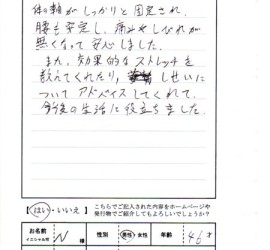 体の軸がしっかりと固定され、
腰も安定し、痛みやしびれが
無くなって安心しました。
また、効果的なストレッチを
教えてくれたり、しせいに
ついてアドバイスしてくれて、
今後の生活に役立ちました。
【はい・いいえ】
こちらでご記入された内容をホームページや
発行物でご紹介してもよろしいでしょうか?
お名前
イニシャル可
N 様
性別
男性・女性
年齢
46才